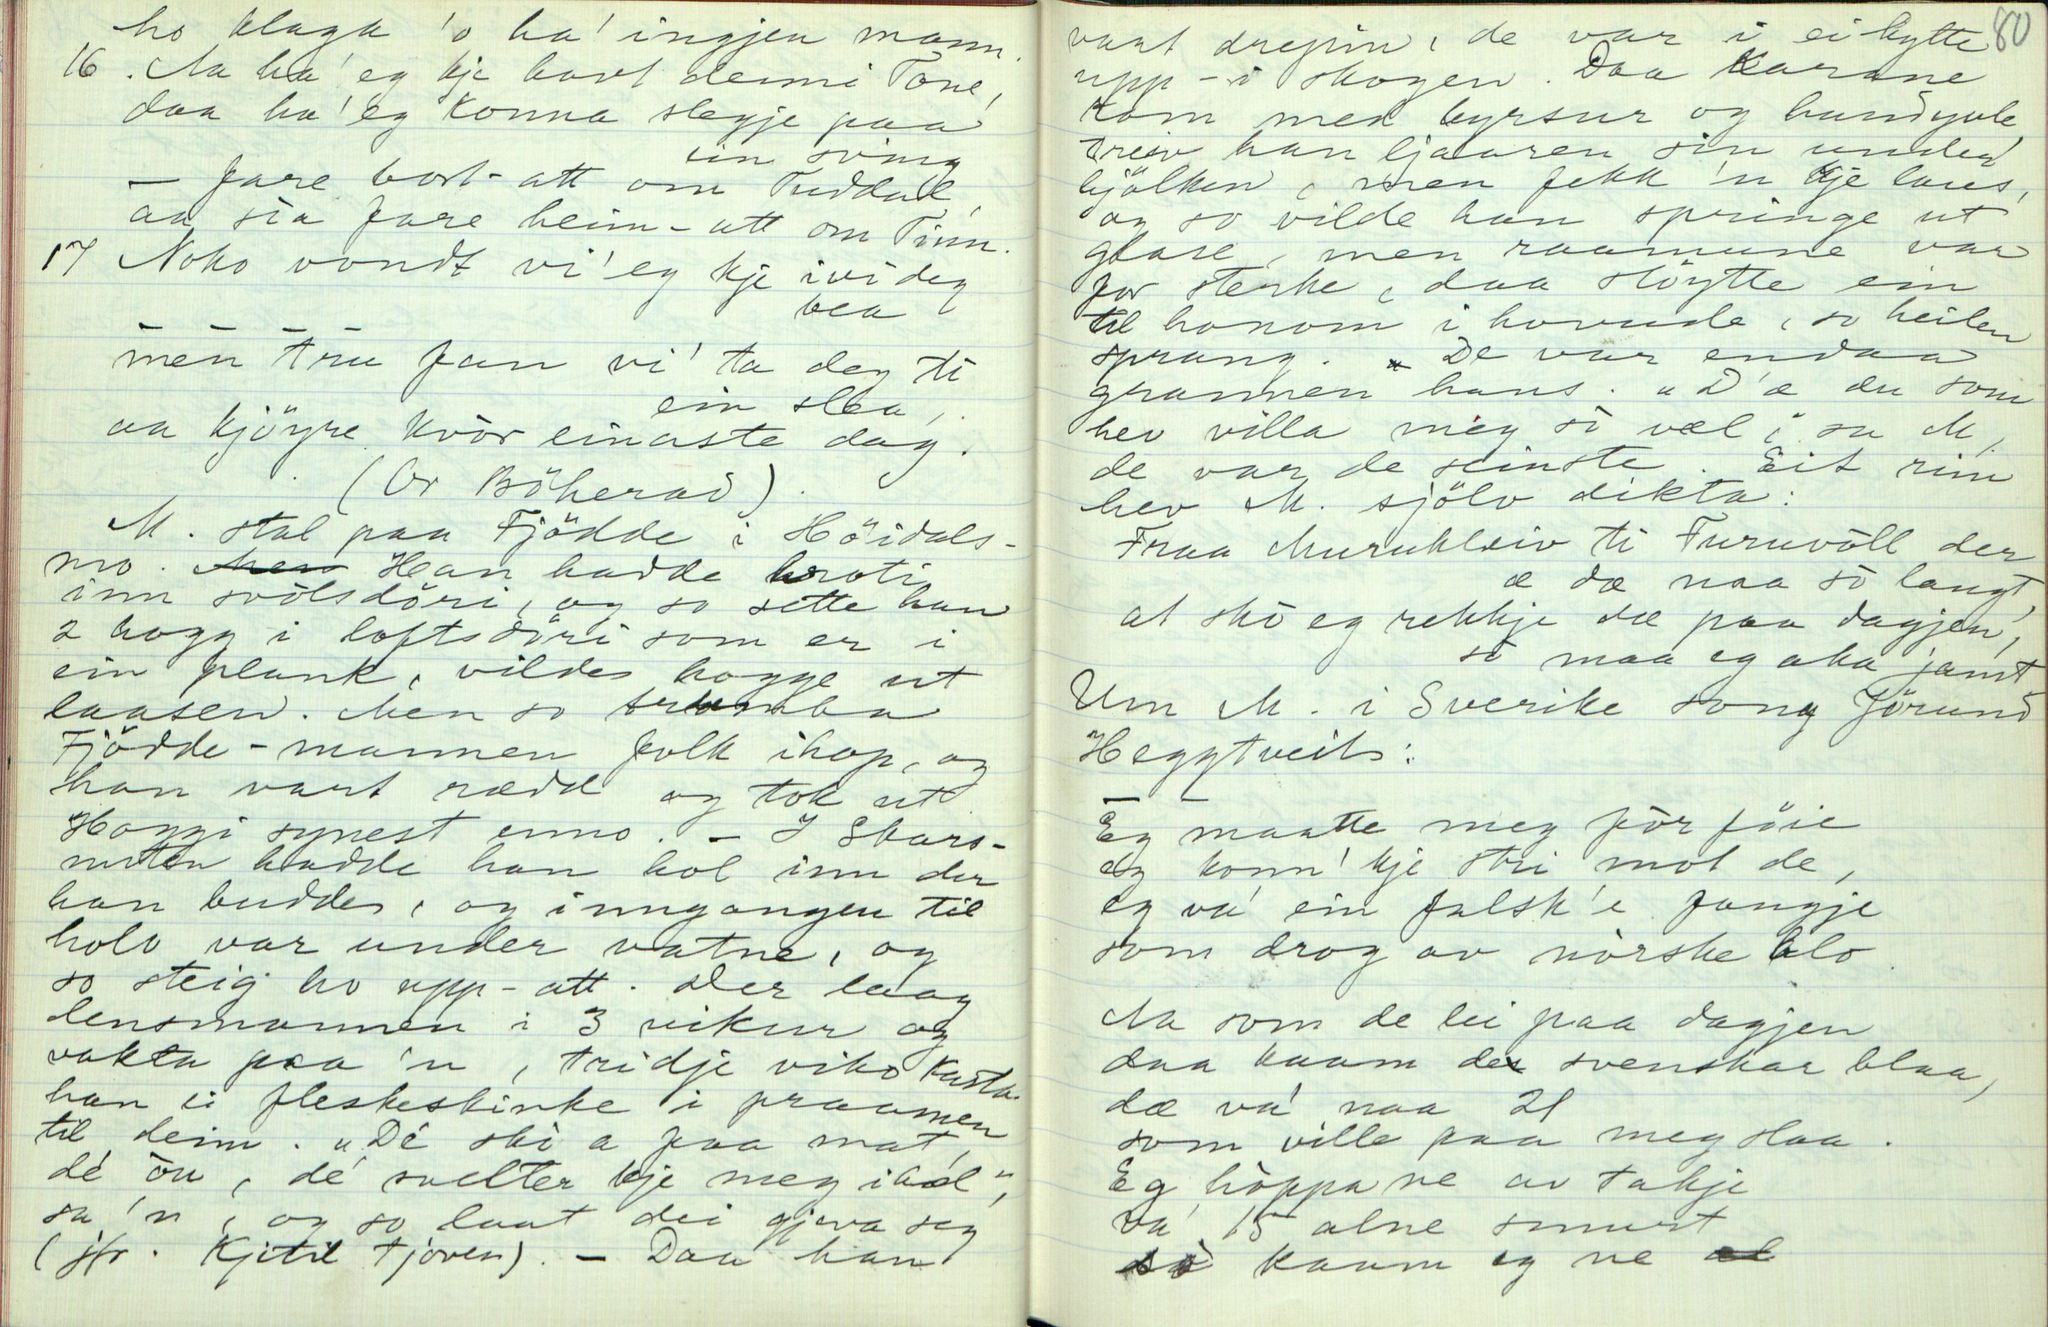 ho klaga 'o ha' ingjen mann.
16. Aa ha' eg kje havt denni Tone,
daa ha' eg konna slegje paa
ein sving
– fare bort-att om Tuddal,
aa sia fare heim-att om Tinn.
17 Noko vondt vi' eg kje ivi deg
bea
men tru fan vi' ta deg ti
ein slea,
aa kjöyre kvòr einaste dag.
(Or Böherad).
M. stal paa Fjödde i Höidals-
mo. Men Han hadde broti
inn svölsdöri, og so sette han
2 hogg i loftsdöri som er i
ein plank, vildes hogge ut
laasen. Men so trumba
Fjödde-mannen folk ihop, og
han vart rædd og tok ut.
Hoggi synest enno. – I Skars-
nuten hadde han hol inn der
han budde, og inngangen til
holo var under vatne, og
so steig ho upp-att. Der laag
lensmannen i 3 vikur og
vakta paa 'n, tridje viko kasta
han ei fleskeskinke i praamen
til deim. "Dé ski a faa mat,
dé òu, dé svelter kje meg ihæl",
sa 'n, og so laat dei gjeva seg
(jfr. Kjetil Tjoven). – Daa han
80
vart drepin, de var i ei hytte
upp-i skogen. Daa karane
kom med byrsur og hundyule,
treiv han ljaaren sin under
bjölken, men fekk 'n kje laus,
og so vilde han springe ut
glase, men raamune var
for sterke, daa stöytte ein
til honom i hovude, so heilen
sprang. De var endaa
grannen hans. "D'æ du som
hev villa meg sò væl", sa M,
de var de seinste. Eit rim
hev M. sjölv dikta:
Fraa Murukleiv ti Furuvòll der
æ dæ naa so langt,
at skò eg rekkje dæ paa dagjen,
so maa eg aka jamt
Um M. i Sverike song Jörund
Heggtveit:
Eg maatte meg fòrföie
eg konn' kje stri mot de,
eg va' ein falsk'e fangje
som drog av nòrske blo.
Aa som de lei paa dagjen
daa kaam de svenskar blaa,
dæ va' naa 21
som ville paa meg slaa.
Eg hòppa ne av takje
va' 15 alne snurt
sò kaam eg ne